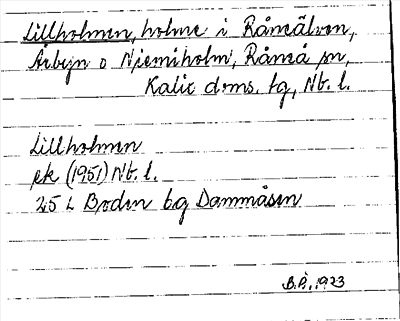 Lillholmen, holme i Råneälven,
Årbyn o Niemiholm, Råneå sn,
Kalix doms. tg, Nb. l.
Lillholmen
ek (1951) Nb. l.
25 L Boden bg Dammåsen
B.P. 1923